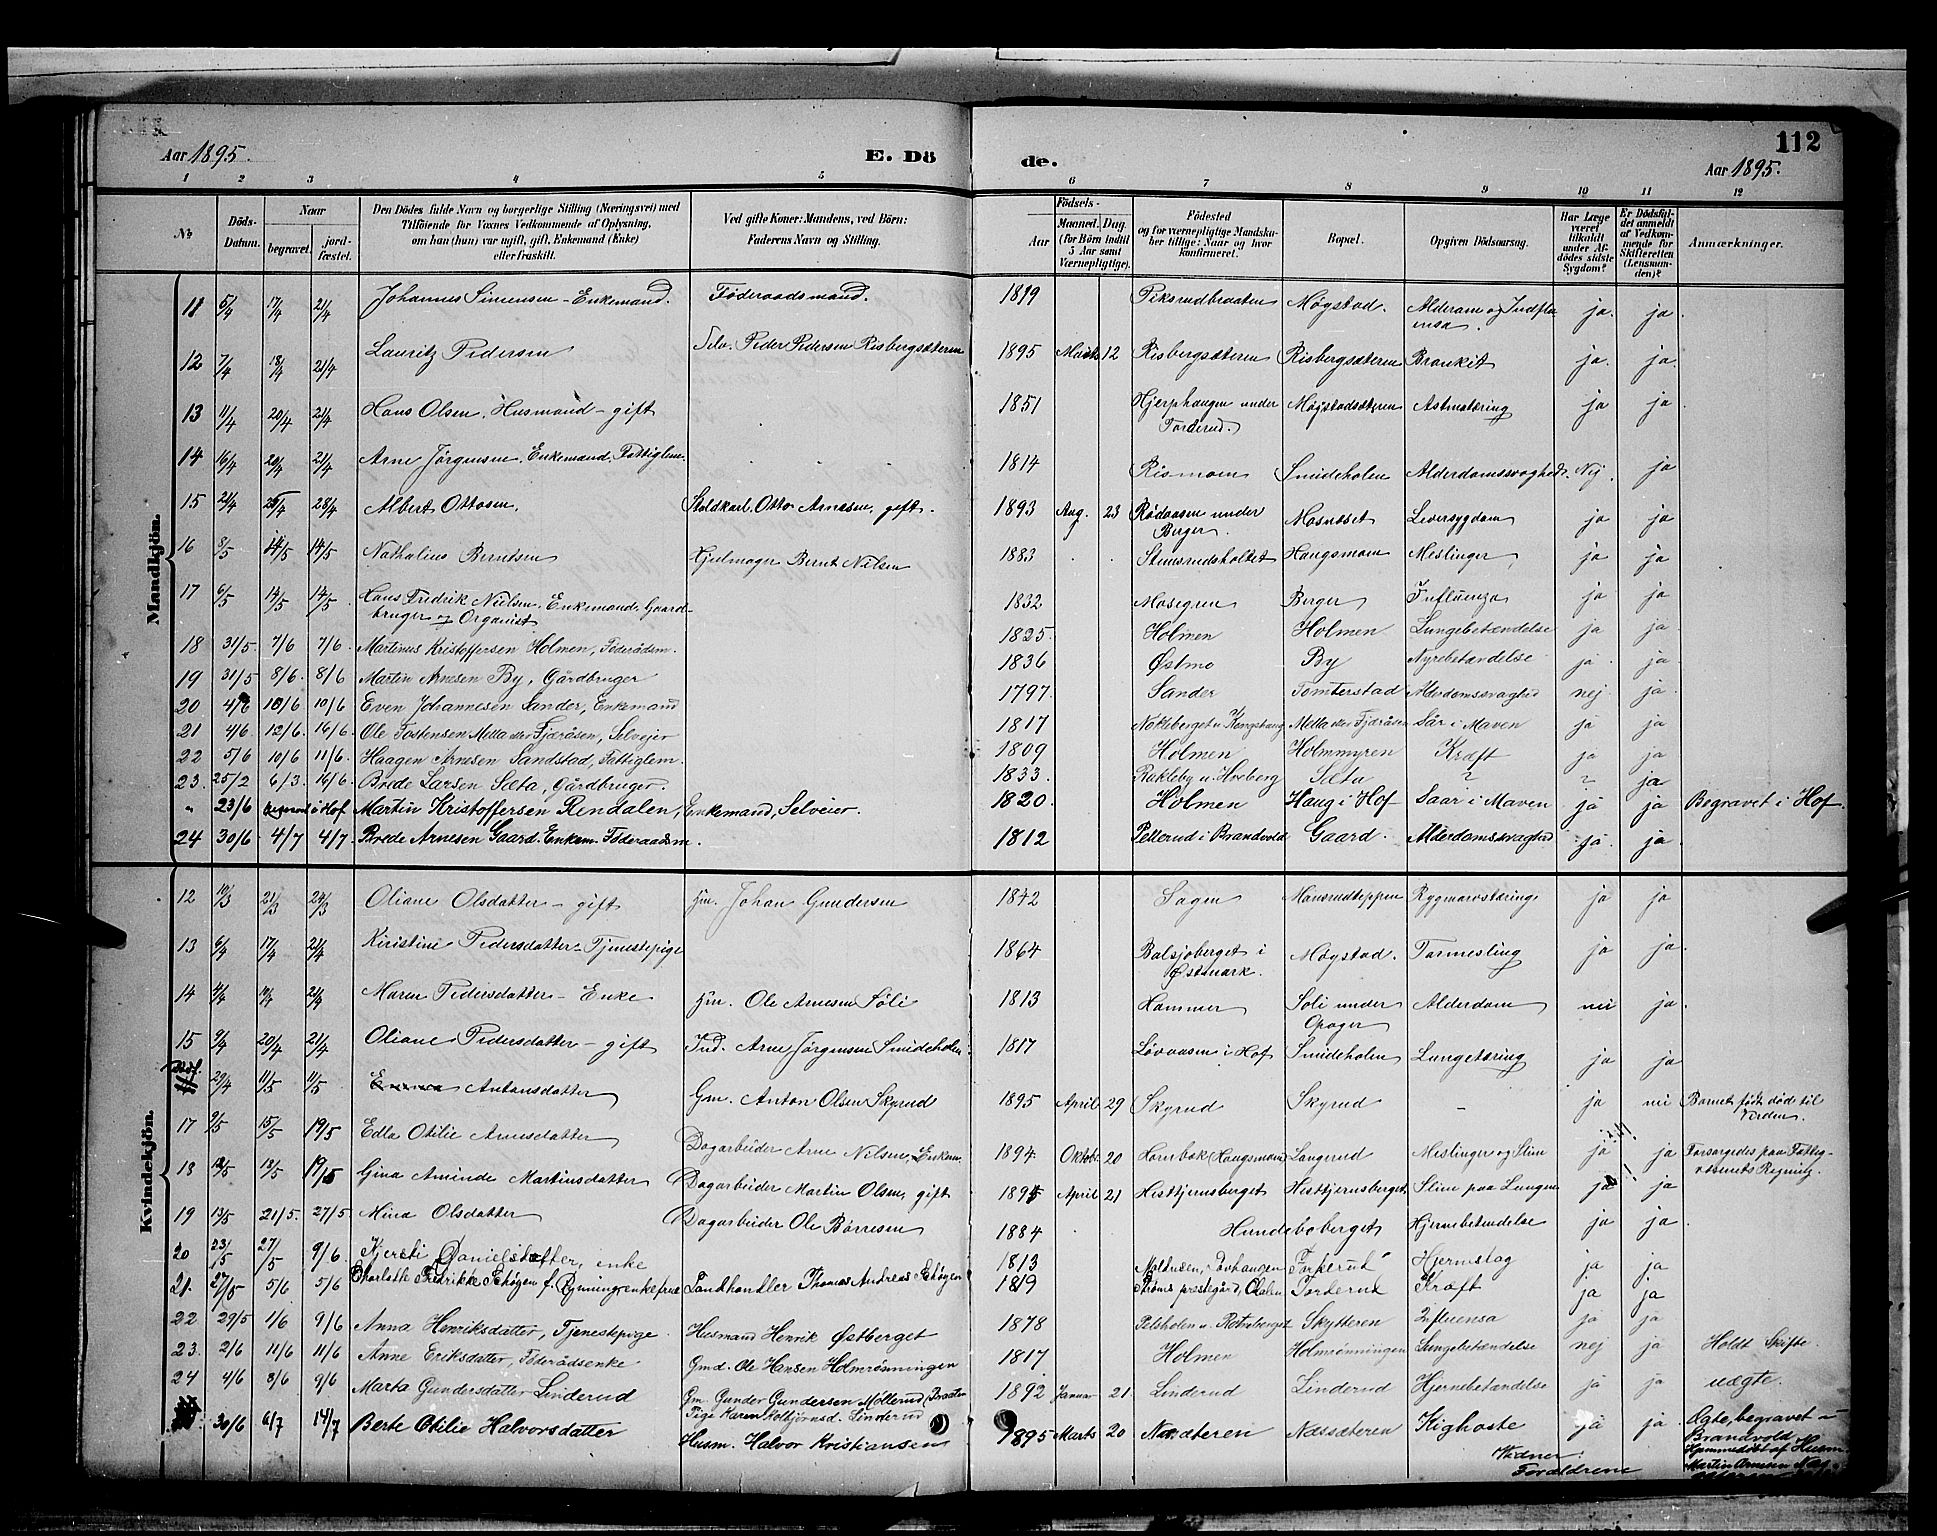 112
Aar 1895.
E. Dö
de.
Aar 1895.
1 2 3 4 5 6 7 8 9 10 11 12
№ Döds-Datum. Naar begravet. jord-fæstet. Den Dödes fulde Navn og borgerlige Stilling (Næringsvei) med Tilföiende for Voxnes Vedkommende af Oplysning, om han (hun) var ugift, gift, Enkemand (Enke) eller fraskilt. Ved gifte Koner: Mandens, ved Börn: Faderens Navn og Stilling. Födsels- Aar Maaned. Dag. (for Börn indtil 5 Aar samt Værnepligtige). Födested og for værnepligtige Mandska-ber tillige: Naar og hvor konfirmeret. Bopæl. Opgiven Dödsaarsag. Har Læge været tilkaldt under Af-dödes sidste Sygdom? Er Dödsfal-det anmeldt af Vedkom-mende for Skifteretten (Lensman-den)? Anmærkninger.
Mandkjön.
11 5/4 17/4 21/4 Johannes Simensen - Enkemand. Föderaadsmand. 1819 Piksrudbraaten Møgstad. Alderdom og Indflu ensa. ja. ja
12 7/4 18/4 21/4 Lauritz Pedersen Selv. Peder Pedersen Risbergsæteren 1895 Marts 12 Risbergsæteren Risbergsæteren Bronkit ja. ja
13 11/4 20/4 21/4 Hans Olsen, Husmand - gift 1851 Hjerphaugen under Torderud. Møgstadsæteren Astmatæring ja ja
14 16/4 20/4 21/4 Arne Jörgensen, Enkemand. Fattiglem. 1814 Rismoen Smideholen Alderdomssvaghed. Nej. ja
15 21/4 25/4 28/4 Albert Ottosen. Staldkarl. Otto Arnesen, gift. 1893 Aug. 23 Rødaasen under Berger. Mosnæset Leversygdom ja ja
16 8/5 14/5 14/5 Nathalius Berntsen Hjulmager Bernt Nilsen 1883 Stemsrudsholtet Haugsmoen Meslinger ja ja
17 6/5 14/5 14/5 Hans Fredrik Nielsen. Enkemand. Gaard-bruger og Organist 1832 Mosegren Berger Influenza ja ja
18 31/5 7/6 7/6 Martinus Kristoffersen Holmen, Föderådsm. 1825. Holmen Holmen Lungebetændelse ja ja
19 31/5 8/6. 8/6 Martin Arnesen By, Gårdbruger 1836 Østmo By Nyrebetændelse ja ja
20 4/6 10/6 10/6 Even Johannesen Sander, Enkemand 1797. Sander Tomterstad Alderdomssvaghed nej ja
21 4/6. 12/6. 16/6. Ole Tostensen Metta eller Fjæråsen, Selveier 1817 Nokkberget u. Kongshaug Metta eller Fjæråsen Sår i Maven ja ja
22 5/6 10/6 11/6 Haagen Arnesen Sandstad, Fattiglem. 1809 Holmen Holmmyren Kræft ja ja
23. 25/2 6/3. 16/6. Brede Larsen Sæta, Gårdbruger. 1833. Rakleby u. Hveberg Sæta ? ? ja
" 23/6 Begravet i Hof Martin Kristoffersen Rendalen, Enkemand, Selveier. 1820. Holmen Haug i Hof Saar i Maven ja ja Begravet i Hof
24 30/6 4/7 4/7 Brede Arnesen Gaard. Enkem. Föderaadsm. 1812 Pellerud i Brandvold Gaard. Alderdomssvaghed ja ja
Kvindekjön.
12 10/3 21/3 24/3 Oliane Olsdatter - gift Hm. Johan Gundersen 1842 Sagen Mansrudteppen Rygmarvstæring ja ja
13 6/4 17/4 21/4 Kiristine Pedersdatter - Tjenestepige 1864 Balsjøberget i Østmark. Møgstad. Tarmesling ja ja
14 4/4 10/4 21/4 Maren Pedersdatter - Enke Hm. Ole Arnesen Söli 1813 Hammer Söli under Opager Alderdom nei ja
15 9/4 20/4 21/4 Oliane Pedersdatter - gift Ind. Arne Jörgensen Smideholen 1817 Løvaasen i Hof Smideholen Lungetæring ja ja
29/4 11/5 11/5 Antonsdatter Gm. Anton Olsen Skyrud 1895 April 29 Skyrud Skyrud - ja nei Barnet født død til Verden.
17 9/5 15/5 19/5 Edla Otilie Arnesdatter Dagarbeider Arne Nilsen, Enkem. 1894 Oktober 20 Hornbæk (Haugsmoen) Langerud Meslinger og Slim ja ja Forsørgedes paa Fattig-væsenets Regning.
18 12/5 13/5 19/5 Gina Aminde Martinsdatter Dagarbeider Martin Olsen, gift 1895 April 21 Histtjernsberget Histtjernsberget Slim paa Lungen ja ja
19 13/5 21/5. 27/5 Mina Olsdatter Dagarbeider Ole Börresen 1884 Hundeboberget Hjernebetændelse ja ja
20 23/5 27/5 9/6 Kjersti Danielsdatter, enke 1813 Torperud Hjerneslag ja ja
21. 27/5 5/6 5/6 Charlotte Fredrikke Schøgen f. Ryning, enkefrue Landhandler Thomas Andreas Schøgen 1819 Strøms prestegård, Odalen Torderud Kræft ja ja
22 29/5 1/6 9/6 Anna Henriksdatter, Tjenestepige. Husmand Henrik Østberget 1878 Pelsholen u. Rotenberget Skytteren Influensa ja ja
23. 2/6 11/6 11/6 Anne Eriksdatter, Föderådsenke Gmd. Ole Hansen Holmrønningen 1817 Holmen Holmrønningen Lungebetændelse nej ja Holdt Skifte.
24 4/6 8/6 9/6 Marta Gundersdatter Linderud Gm. Gunder Gundersen Möllerud Braaten Pige Karen Kolbjörnsd. Linderud 1892 Januar 21. Linderud Linderud Hjernebetændelse ja ja uægte.
30/6 6/7 14/7 Berte Otilie Halvorsdatter Husm. Halvor Kristiansen 1895 Marts 20 Næsæteren Næssæteren Kighoste ja ja. Ægte, begravet i Brandvold Hjemmedøbt af Husm. Martin Arnesen
Vidner: Forældrene